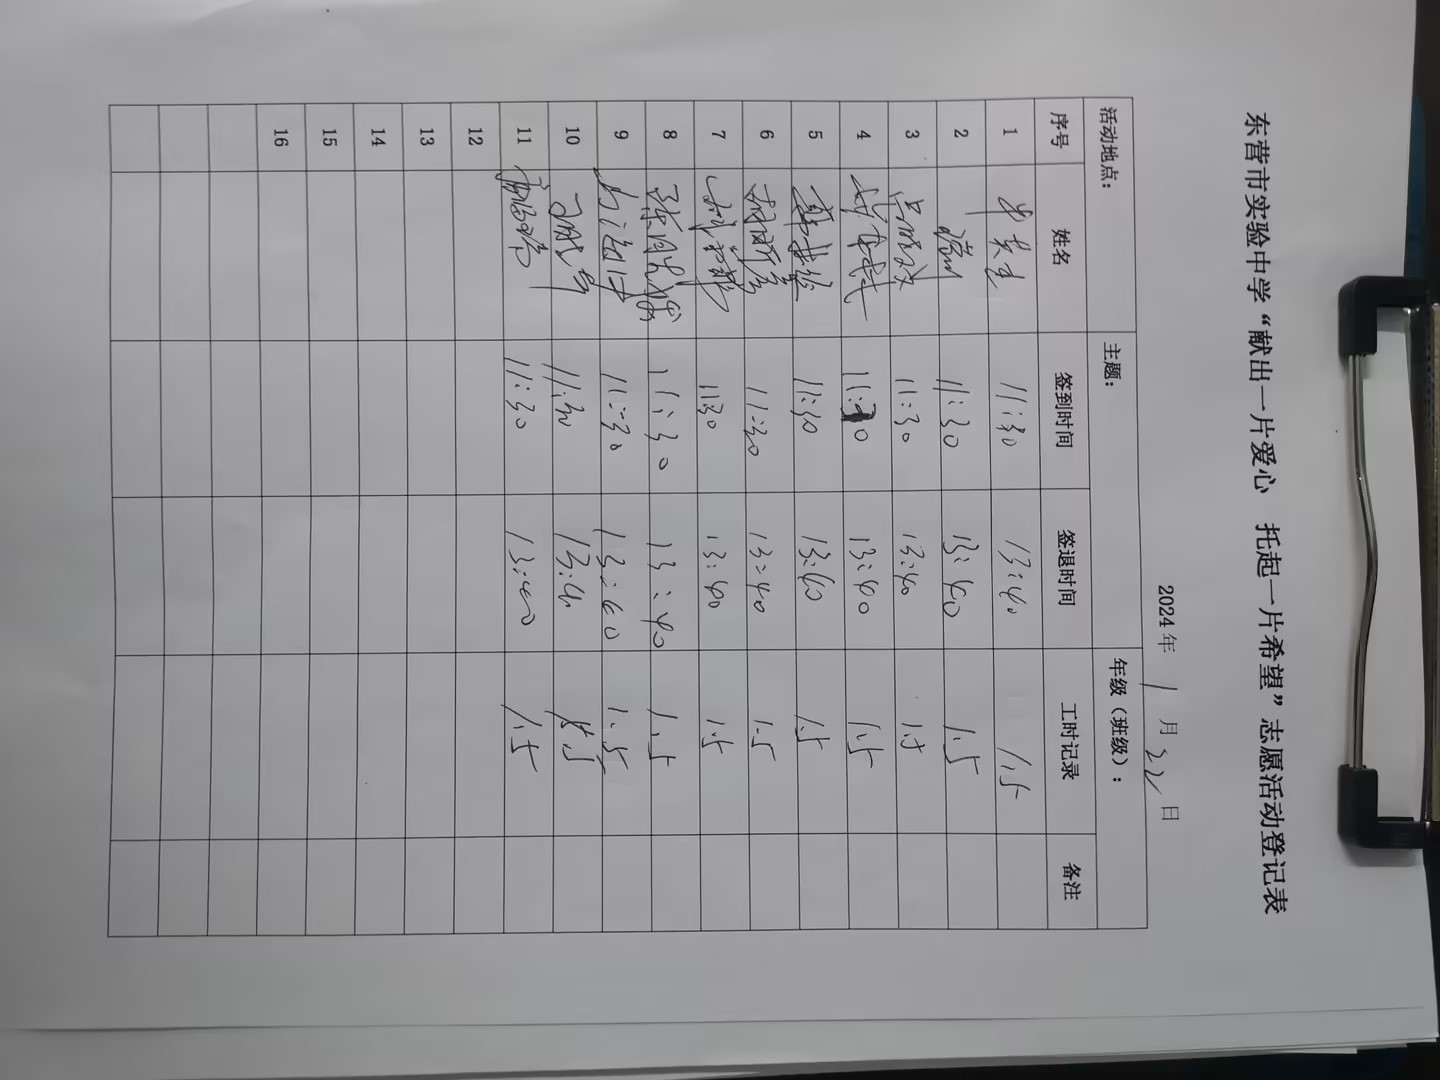 东营市实验中学“献出一片爱心 托起一片希望”志愿活动登记表
2024年 1 月 22 日
活动地点： 主题： 年级（班级）：
序号 姓名 签到时间 签退时间 工时记录 备注
1 11:30 13:40 1.5
2 11:30 13:40 1.5
3 11:30 13:40 1.5
4 11:30 13:40 1.5
5 11:30 13:40 1.5
6 11:30 13:40 1.5
7 1130 13:40 1.5
8 11:30 13:40 1.5
9 11:30 13:40 1.5
10 11:30 13:40 1.5
11 11:30 13:40 1.5
12
13
14
15
16